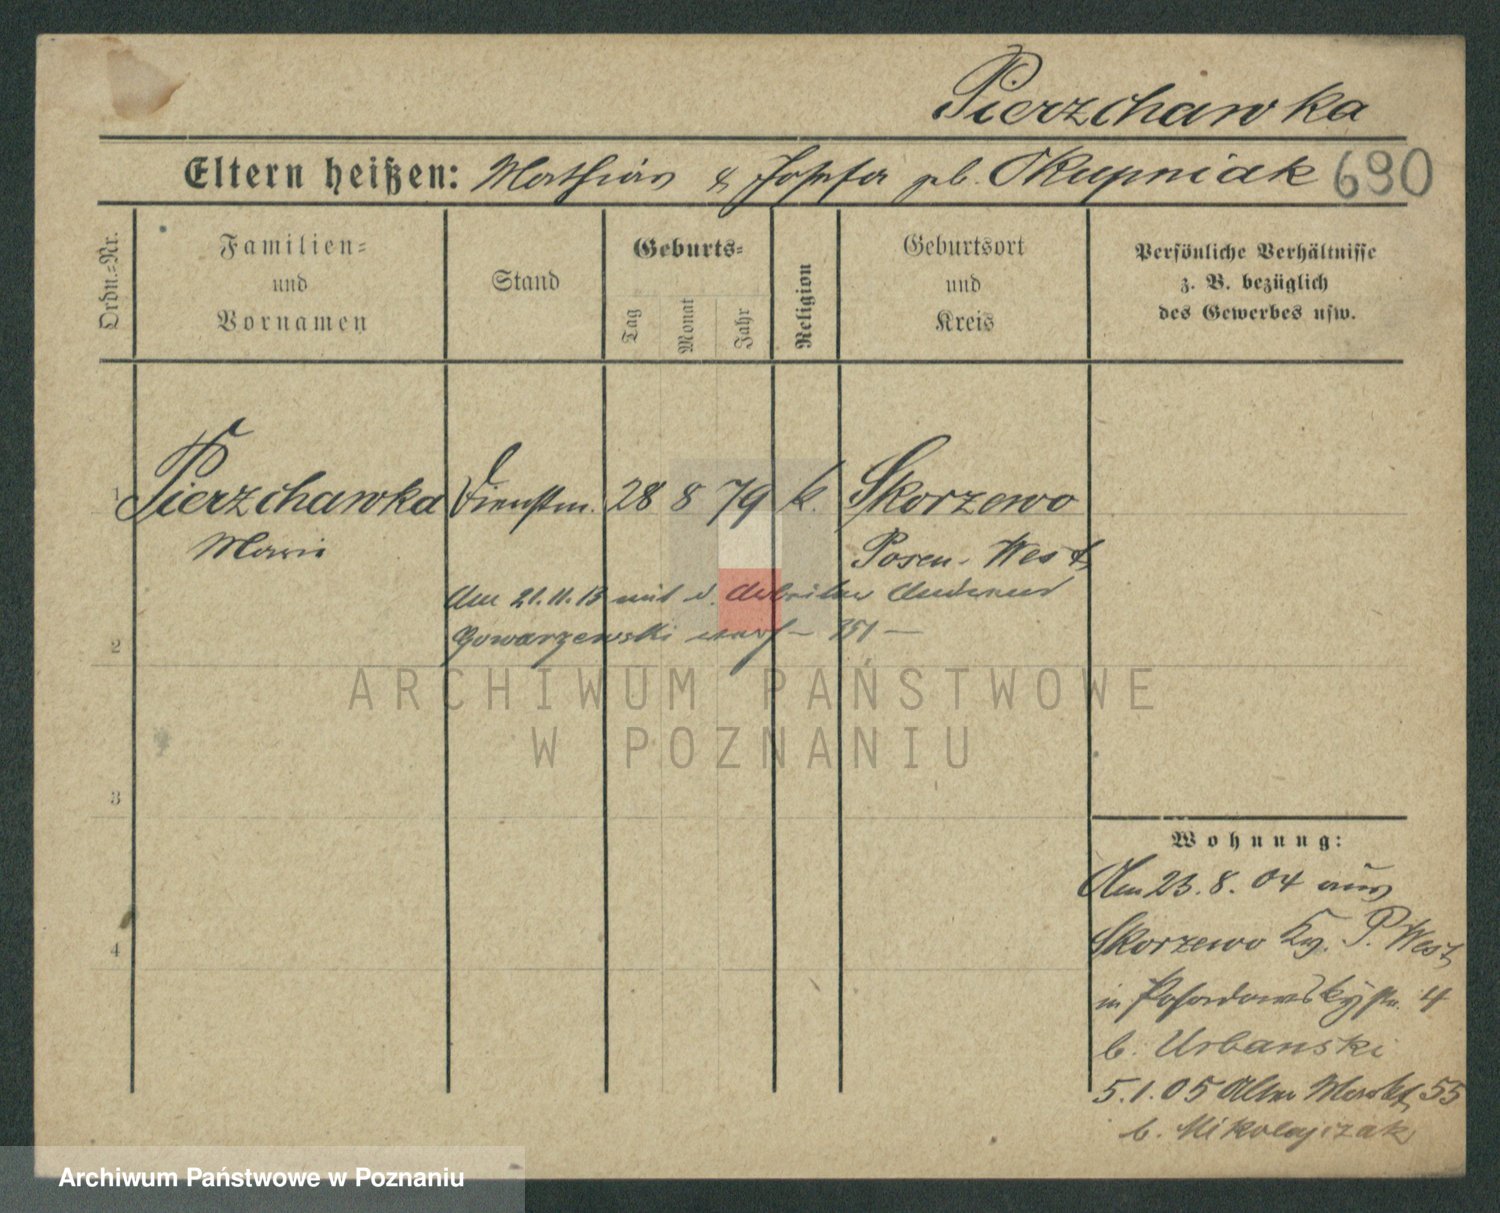 Pierzchawka
Eltern heißen: Mathias & Josefa geb. Skupniak 690
Ordn.=Nr.
Familien=
und
Vornamen
Stand
Geburts=
Tag
Monat
Jahr
Religion
Geburtsort
und
Kreis
Persönliche Verhältnisse
z. B. bezüglich
des Gewerbes usw.
1 Pierzchawka Dienstm. 28 8 79 k. Skorzewo
Marie Posen-West
Am 21.11.13 mit d. Arbeiter
Gowarzewski verh –
2
ARCHIWUM PAŃSTWOWE
W POZNANIU
3
4
Wohnung:
Am 23.8.04 aus
Skorzewo Krs. P. West
in Posadowskystr. 4
b. Urbanski
5.1.05 Alter Markt 55
b. Mikolajczak
Archiwum Państwowe w Poznaniu